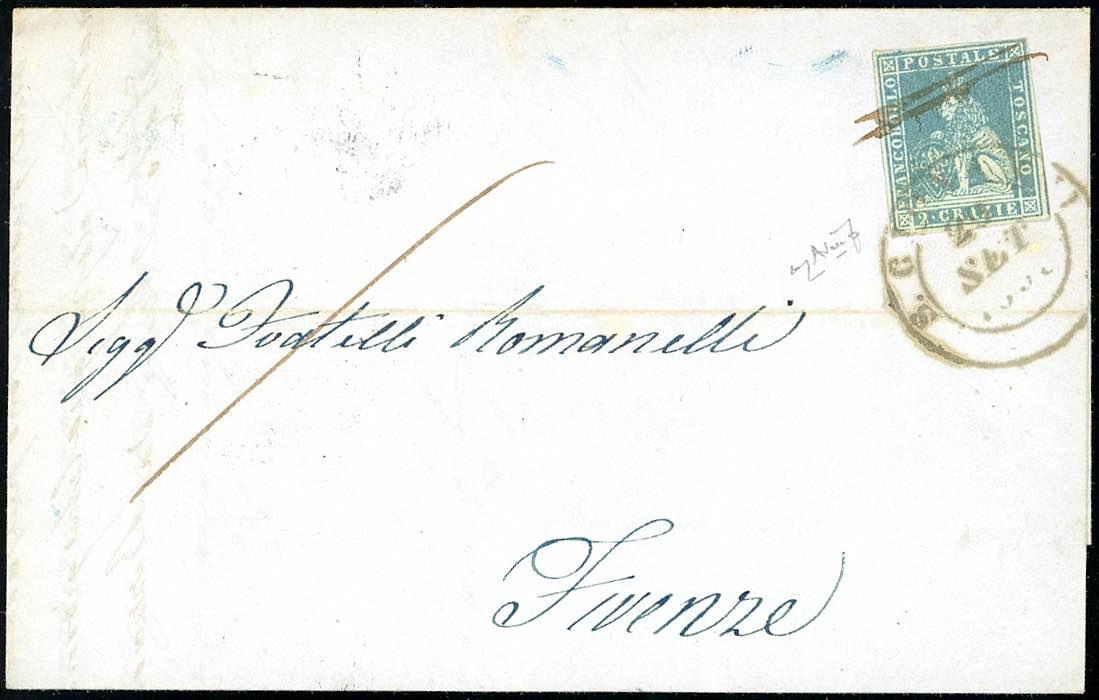 FRANCOBOLLO POSTALE TOSCANO
2 · CRAZIE
S. C
SET
Sigg.ri Fratelli Romanelli
Firenze